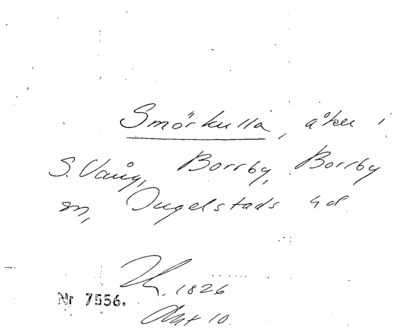 Smörkulla, åker i
S. Vång, Borrby, Borrby
sn, Ingelstads hd
1826
Nr 7556.
Akt 10